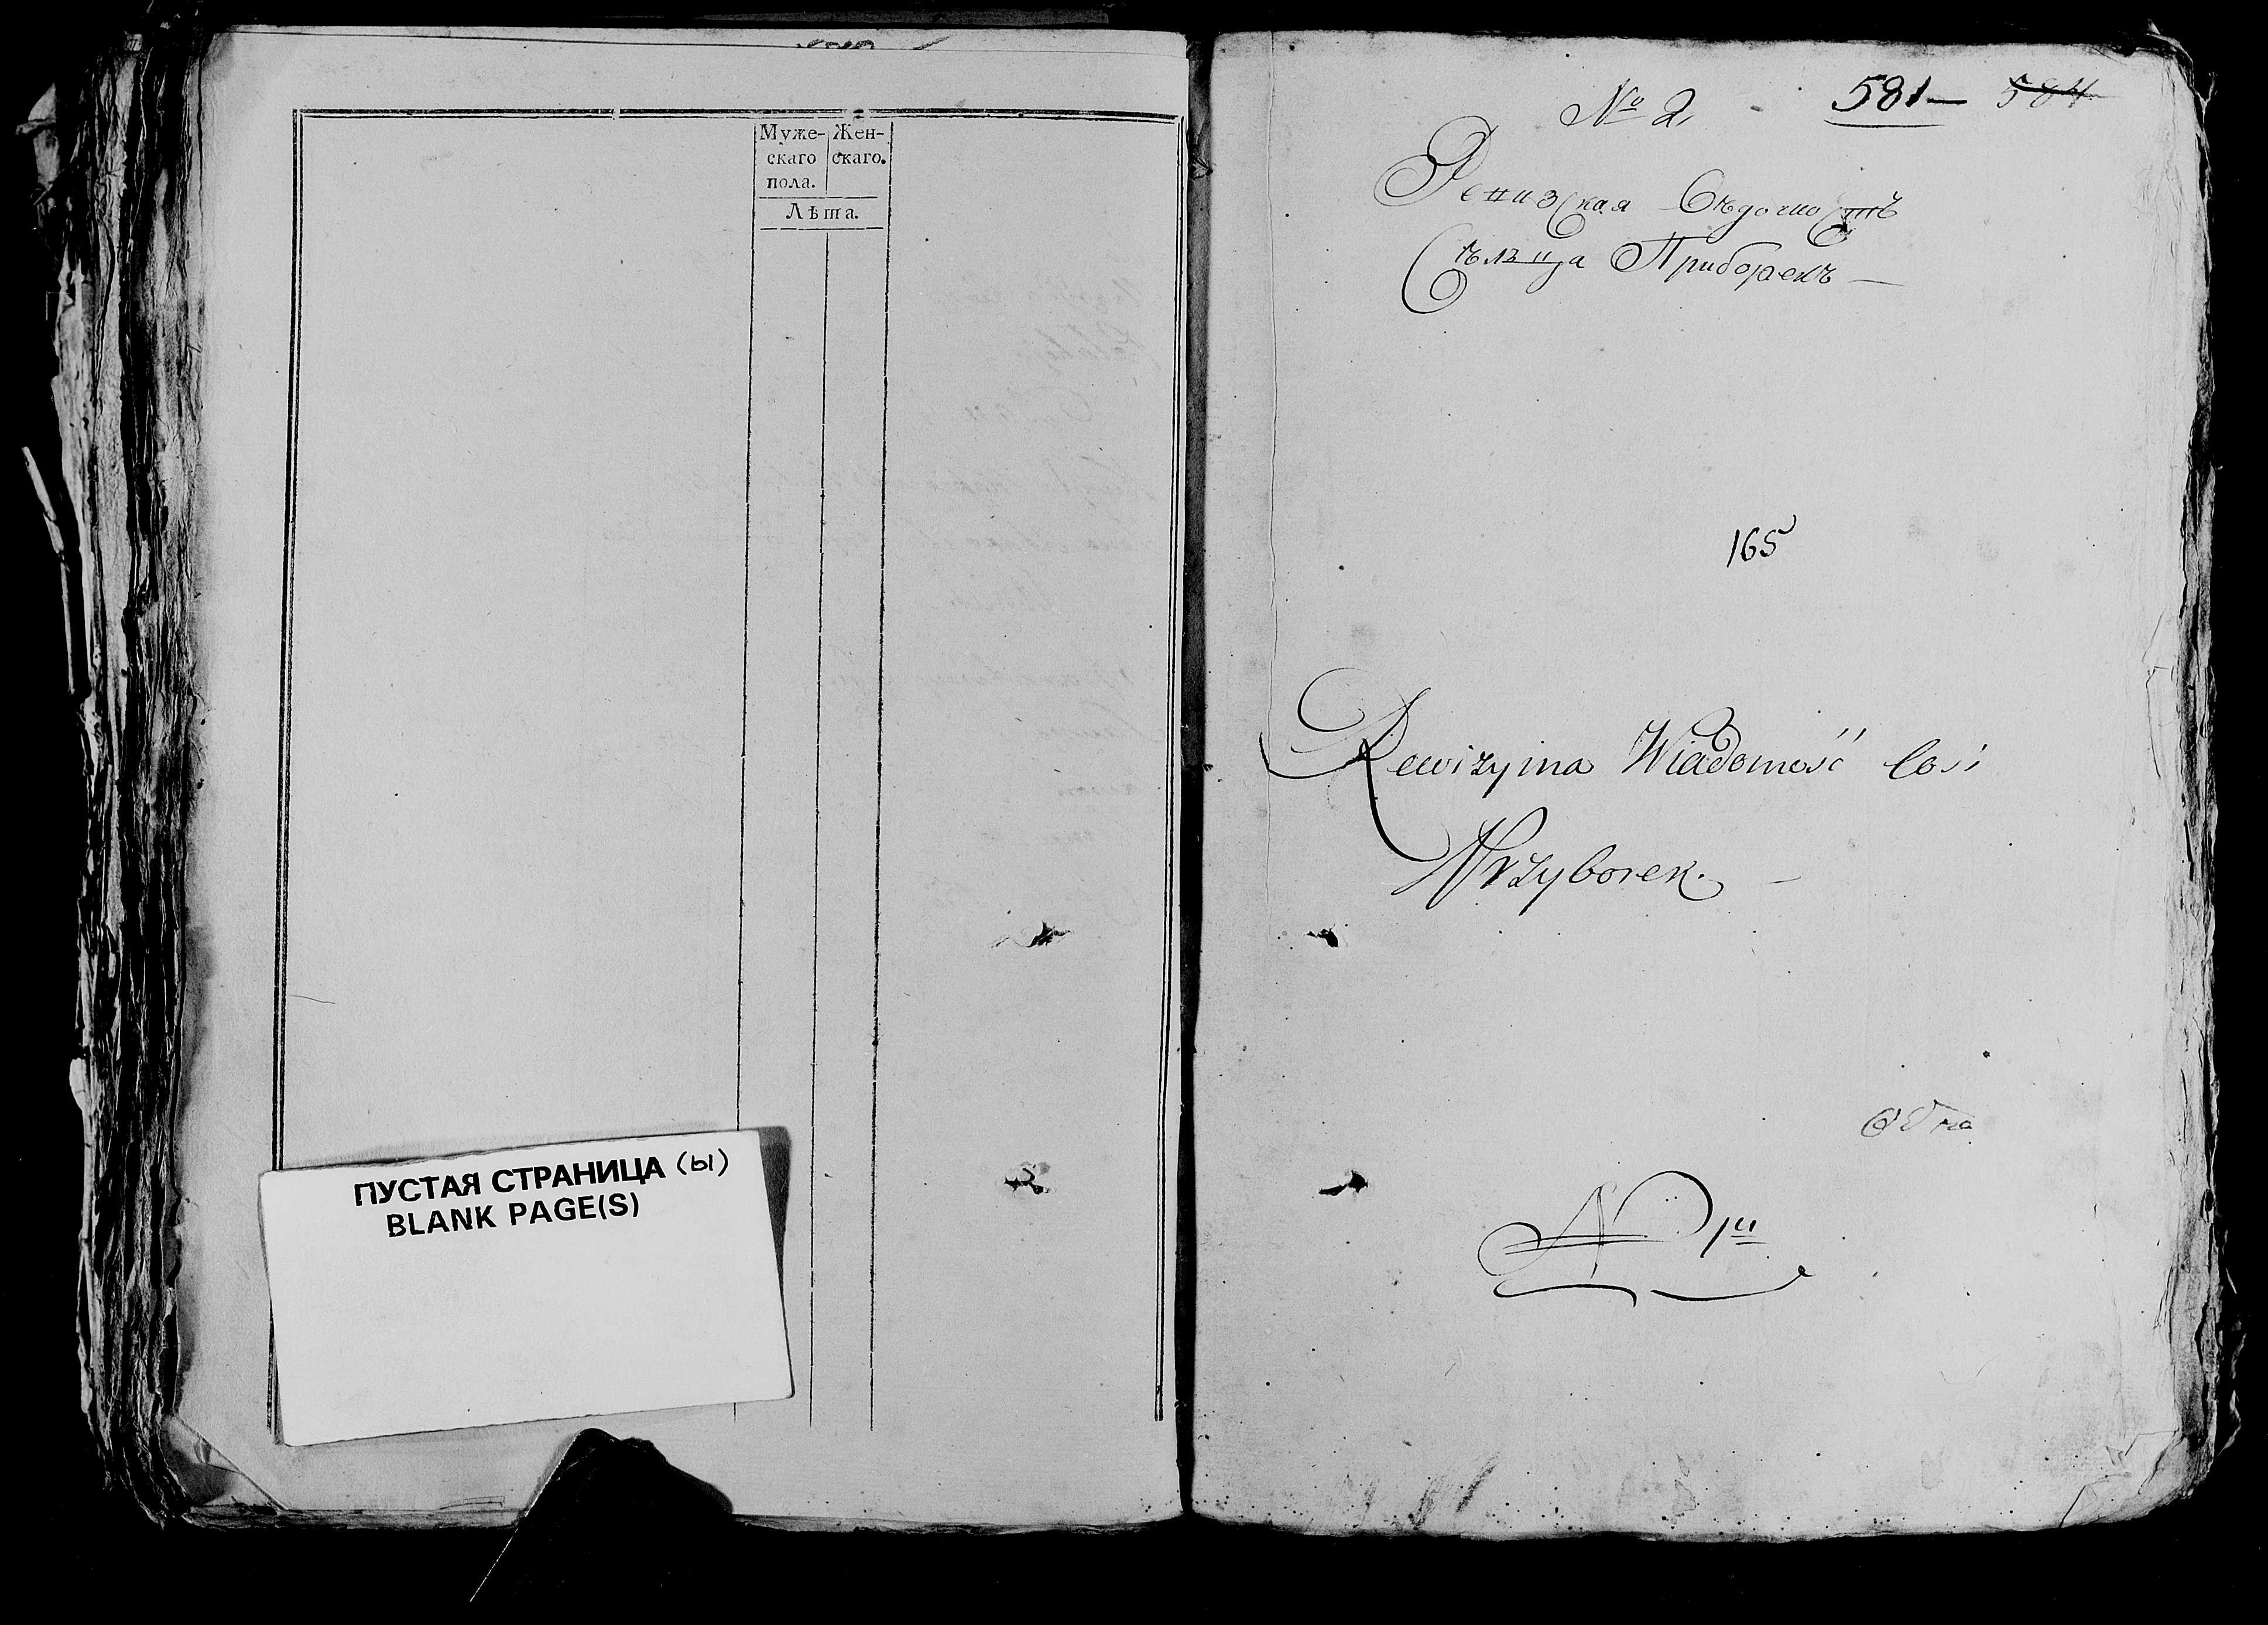 Муже-
скаго
пола.
Жен-
скаго.
Лѣта.
ПУСТАЯ СТРАНИЦА (ы)
BLANK PAGE(S)
№ 2, 581— 584
Ревизская Вѣдомость
Сѣльца Приборекъ —
165
Rewizyina Wiadomość
Przyborek. —